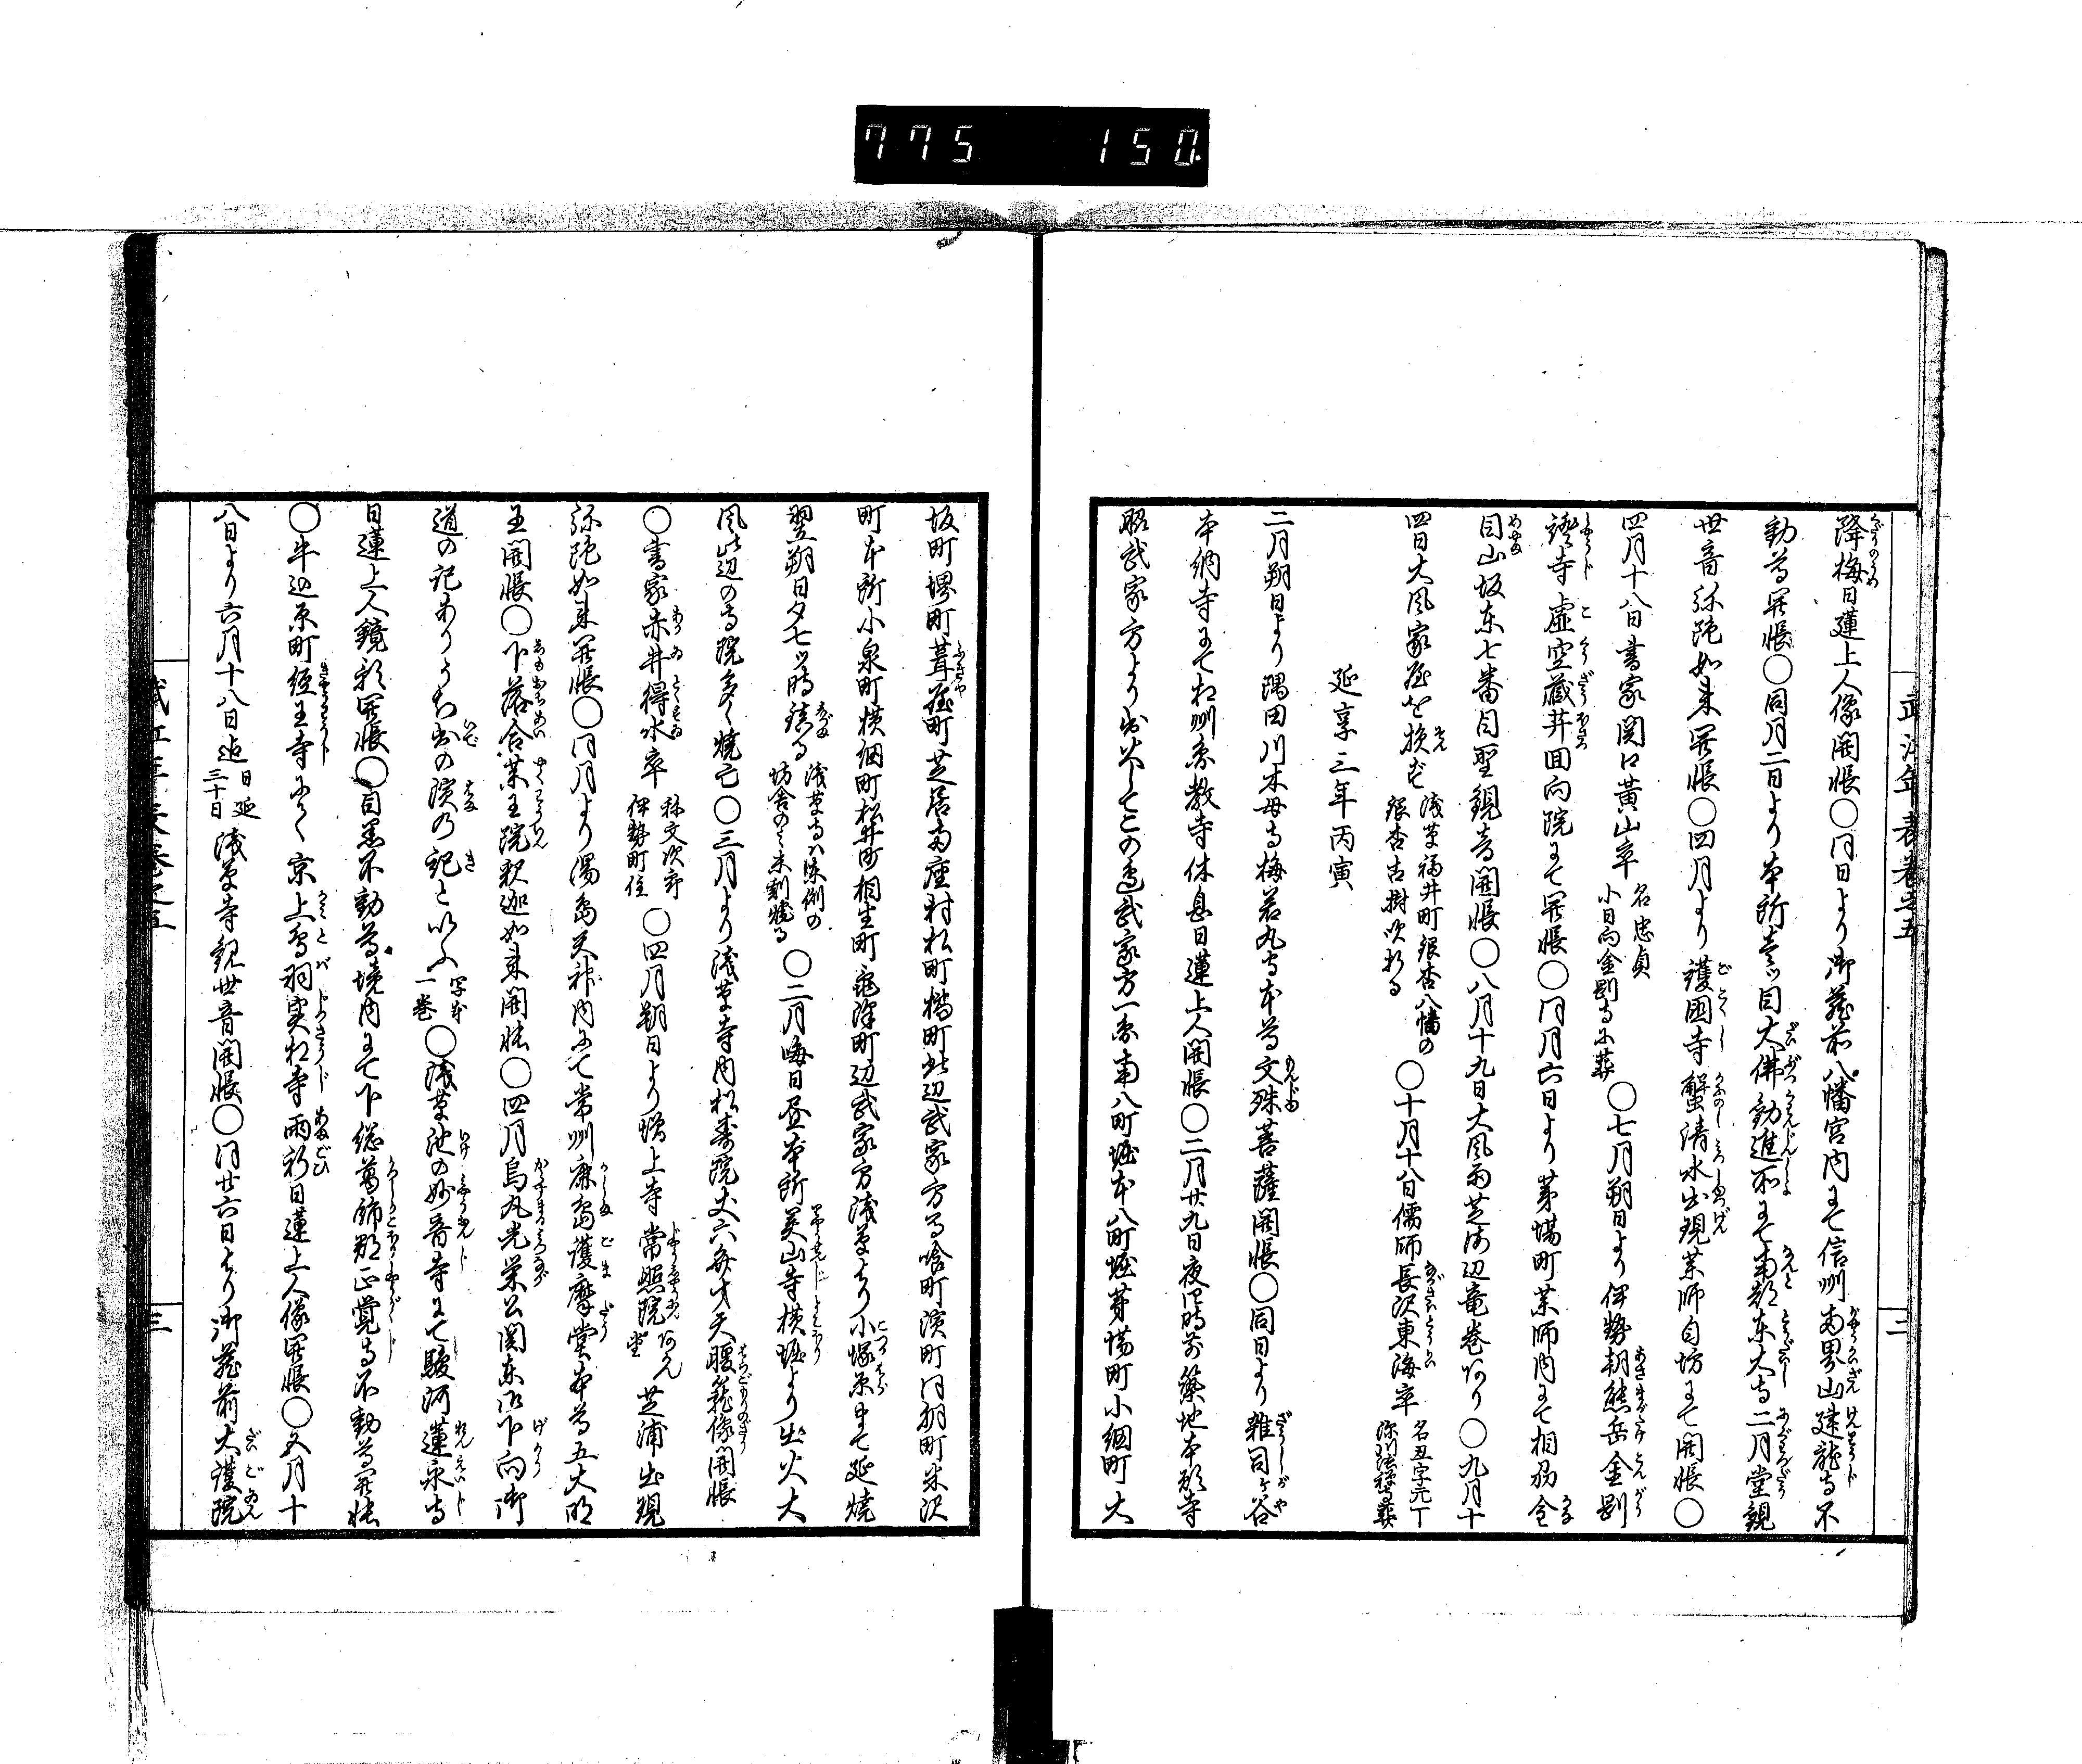 775 150.
武江年表巻之五
二
降梅日蓮上人像開帳〇同日より御蔵前八幡宮内にて信州両界山建龍寺不
動尊開帳〇同月二日より本所壱ツ目大佛勧進所にて南都東大寺二月堂観
世音弥陀如来開帳〇四月より護国寺蟹清水出現薬師自坊にて開帳〇
四月十八日書家関口黄山卒名忠貞小日向金剛寺に葬〇七月朔日より伊勢朝熊岳金剛
證寺虚空蔵井回向院にて開帳〇同月六日より茅場町薬師内にて相州金
目山坂東七番目聖観音開帳〇八月十九日大風雨芝海辺竜巻あり〇九月十
四日大風家屋を損ず浅草福井町銀杏八幡の銀杏古樹吹折る〇十月十八日儒師長沢東海卒
延享三年丙寅
二月朔日より隅田川木母寺梅若丸寺本尊文殊菩薩開帳〇同日より雑司ヶ谷
本納寺にて相州原教寺休息日蓮上人開帳〇二月廿九日夜四時前築地本願寺
坂町堺町葺屋町芝居両座村松町橘町此辺武家方馬喰町濱町同朋町米沢
町本所小泉町横網町松井町相生町亀澤町辺武家方浅草より小塚原まで延焼
翌朔日夕七ツ時鎮る浅草寺は末例の坊舎のミ末剰焼る〇二月晦日昼本所
風此辺の寺院多く焼亡〇三月より浅草寺内松寿院丈六弁才天腹籠像開帳
〇書家赤井得水卒称文次郎伊勢町住〇四月朔日より増上寺常照院芝浦出現
弥陀如来開帳〇同月より湯島天神内にて常州鹿島護摩堂本尊五大明
王開帳〇下落合薬王院釈迦如来開帳〇四月烏丸光栄公関東御下向御
道の記ありうち出の濱の記といふ写本一巻〇浅草池の妙音寺にて駿河蓮永寺
日蓮上人鏡影開帳〇目黒不動尊境内にて下総葛飾郡正覚寺不動尊開帳
〇牛込原町経王寺にて京上鳥羽実相寺雨祈日蓮上人像開帳〇五月十
八日より六月十八日迄日延三十日浅草寺観世音開帳〇同廿六日より御蔵前大護院
三